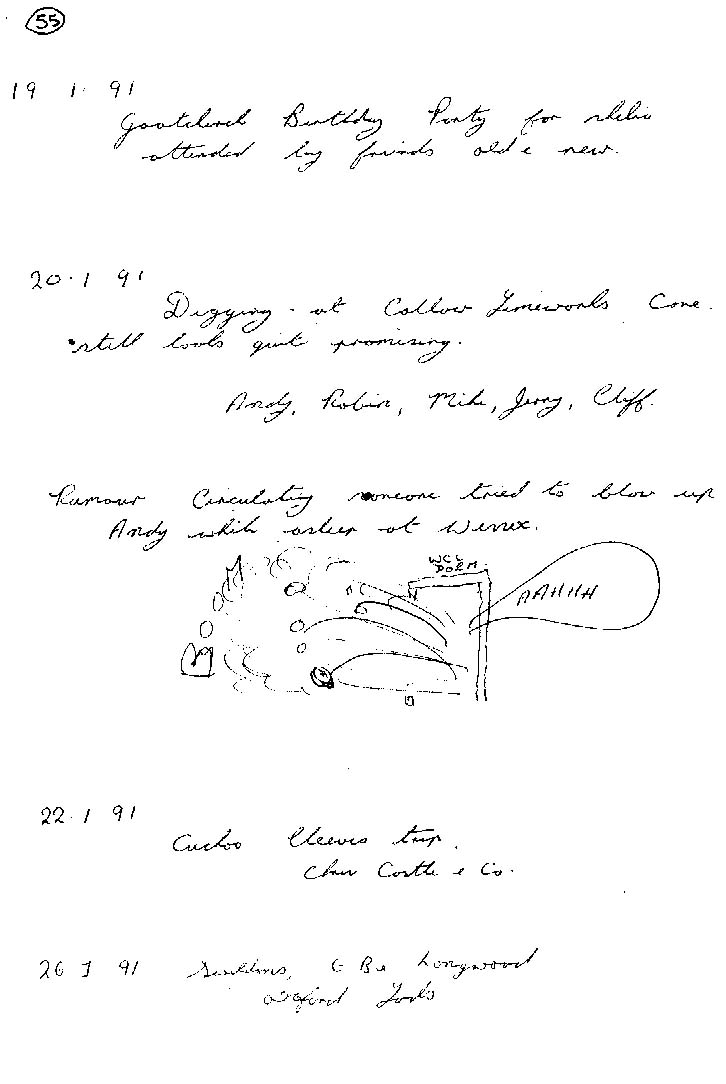 55
19 1. 91
Goatchurch Birthday Party for
attended by friends old & new.
20.1 91
Digging at Callow Limeworks Cave.
still looks quite promising.
Andy, Robin, Mike, Jerry, Cliff.
Rumour Circulating someone tried to blow up
Andy while asleep at Wessex.
WCC
DORM
AAHHH
22.1 91
Cuckoo Cleeves trip.
Castle & Co.
26 1 91 Swildons, G B & Longwood